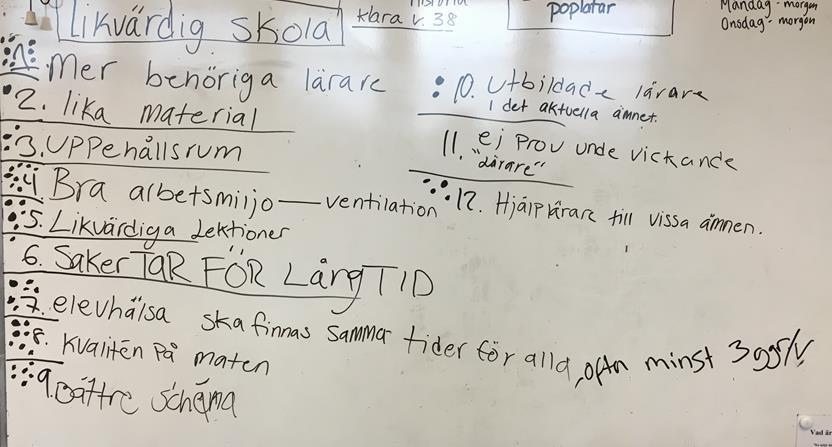 Historia
klara v. 38
poplatar
Måndag - morgon
Onsdag - morgon
Likvärdig skola
1. Mer behöriga lärare
2. lika material
3. UPPehållsrum
4. Bra arbetsmiljo — ventilation
5. Likvärdiga Lektioner
6. Saker TAR FÖR LångTID
7. elevhälsa ska finnas samma tider för alla, ofta minst 3 ggr/v.
8. Kvalitén på maten
9. Bättre schema
10. Utbildade lärare
i det aktuella ämnet.
11. ej Prov unde vickande
"lärare"
12. Hjälplärare till vissa ämnen.
Vad är